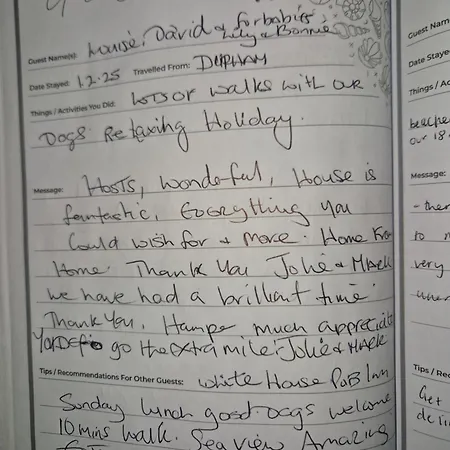 Guest Name(s): Louise, David & furbabies
Lily & Bonnie
Date Stayed: 1.2.25 Travelled From: DURHAM
Things / Activities You Did: Lots of walks with our
Dogs. Relaxing Holiday.
Message: Hosts, wonderful, House is
fantastic, Everything you
Could wish for & more. Home from
Home. Thank you Jolie & Mark
we have had a brilliant time.
Thank you, Hamper much appreciate
You Def go the extra mile. Jolie & Mark
Tips / Recommendations For Other Guests: White House Pub Inn
Sunday lunch good. Dogs welcome
10 mins walk. Sea view Amazing
Guest Nam
Date Staye
Things / Ac
beache
our 18
Message:
- ther
to
very
Tips / Rec
Get